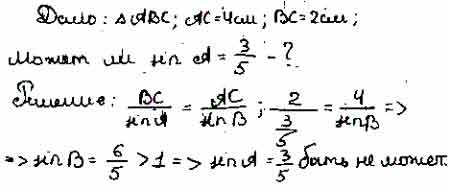 Дано: ΔABC; AC=4см; BC=2см;
Может ли sin A = 3/5 - ?
Решение: BC/sin A = AC/sin B ; 2/(3/5) = 4/sin B =>
=> sin B = 6/5 > 1 => sin A = 3/5 быть не может.